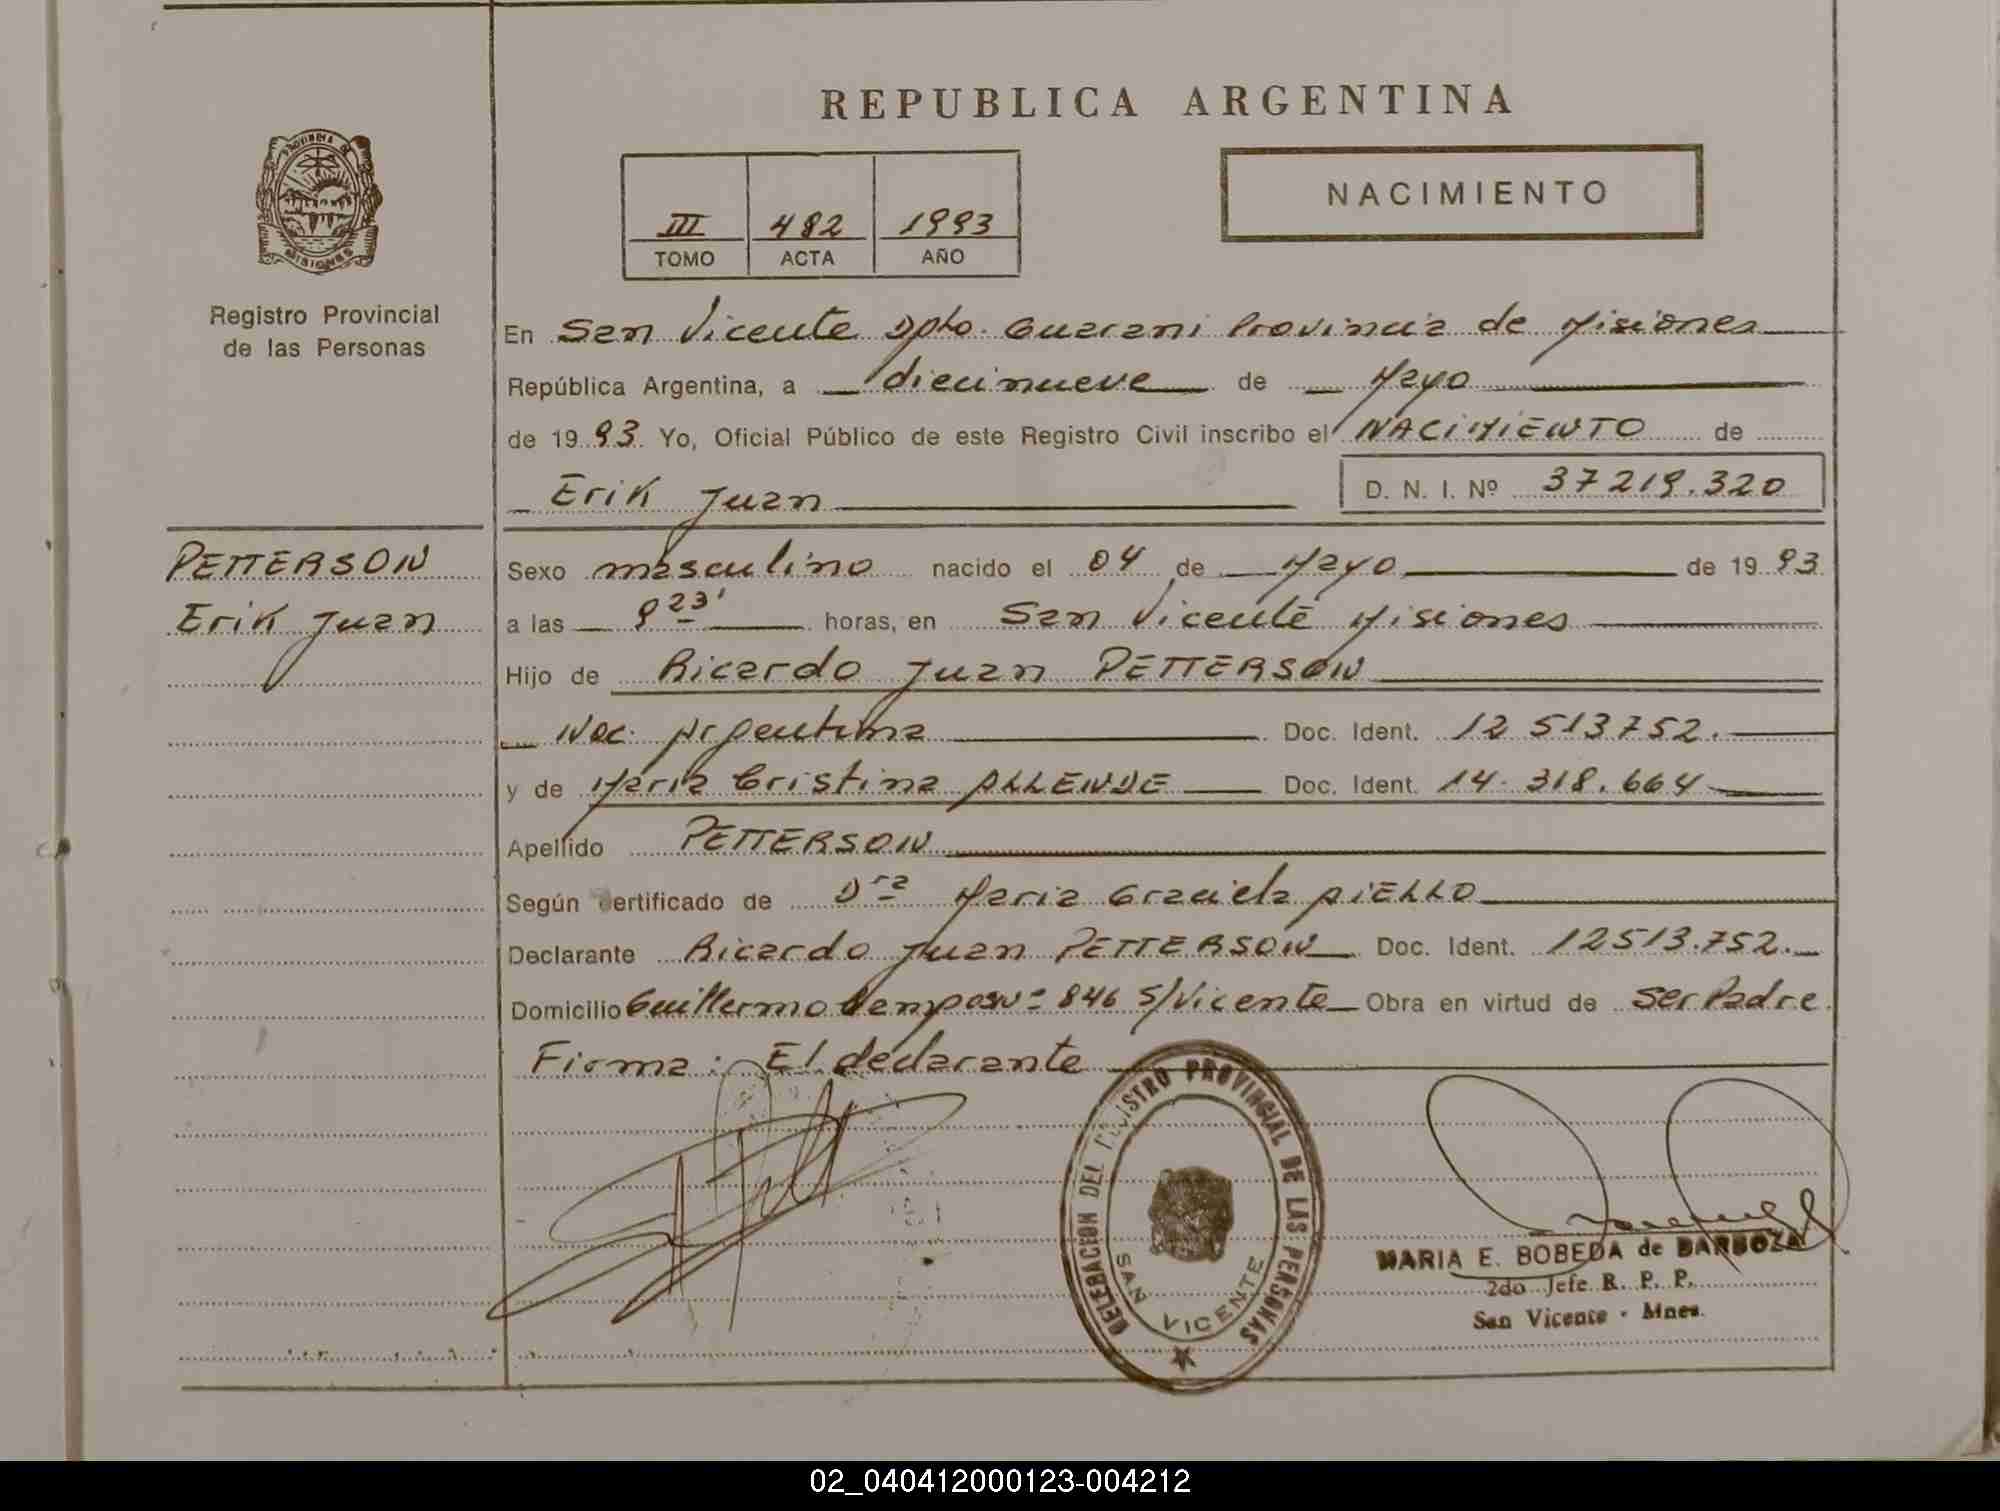 REPUBLICA ARGENTINA
PROVINCIA DE MISIONES
Registro Provincial
de las Personas
III 482 1993
TOMO ACTA AÑO
NACIMIENTO
En San Vicente Dpto. Guarani Provincia de Misiones
República Argentina, a diecinueve de Mayo
de 1993. Yo, Oficial Público de este Registro Civil inscribo el NACIMIENTO de
Erik Juan D. N. I. Nº 37219.320
PETTERSON
Erik Juan
Sexo masculino nacido el 04 de Mayo de 1993
a las 8 23' horas, en San Vicente Misiones
Hijo de Ricardo Juan PETTERSON
Nac. Argentina Doc. Ident. 12 513752.
y de Maria Cristina ALLENDE Doc. Ident. 14.318.664
Apellido PETTERSON
Según certificado de Dra Maria Graciela AIELLO
Declarante Ricardo Juan PETTERSON Doc. Ident. 12513.752.
Domicilio Guillermo Nº 846 S/Vicente Obra en virtud de ser Padre.
Firma: El declarante
DELEGACION DEL REGISTRO PROVINCIAL DE LAS PERSONAS
SAN VICENTE
MARIA E. BOBEDA de BARBOZA
2do Jefe R. P. P.
San Vicente - Mnes.
02_040412000123-004212